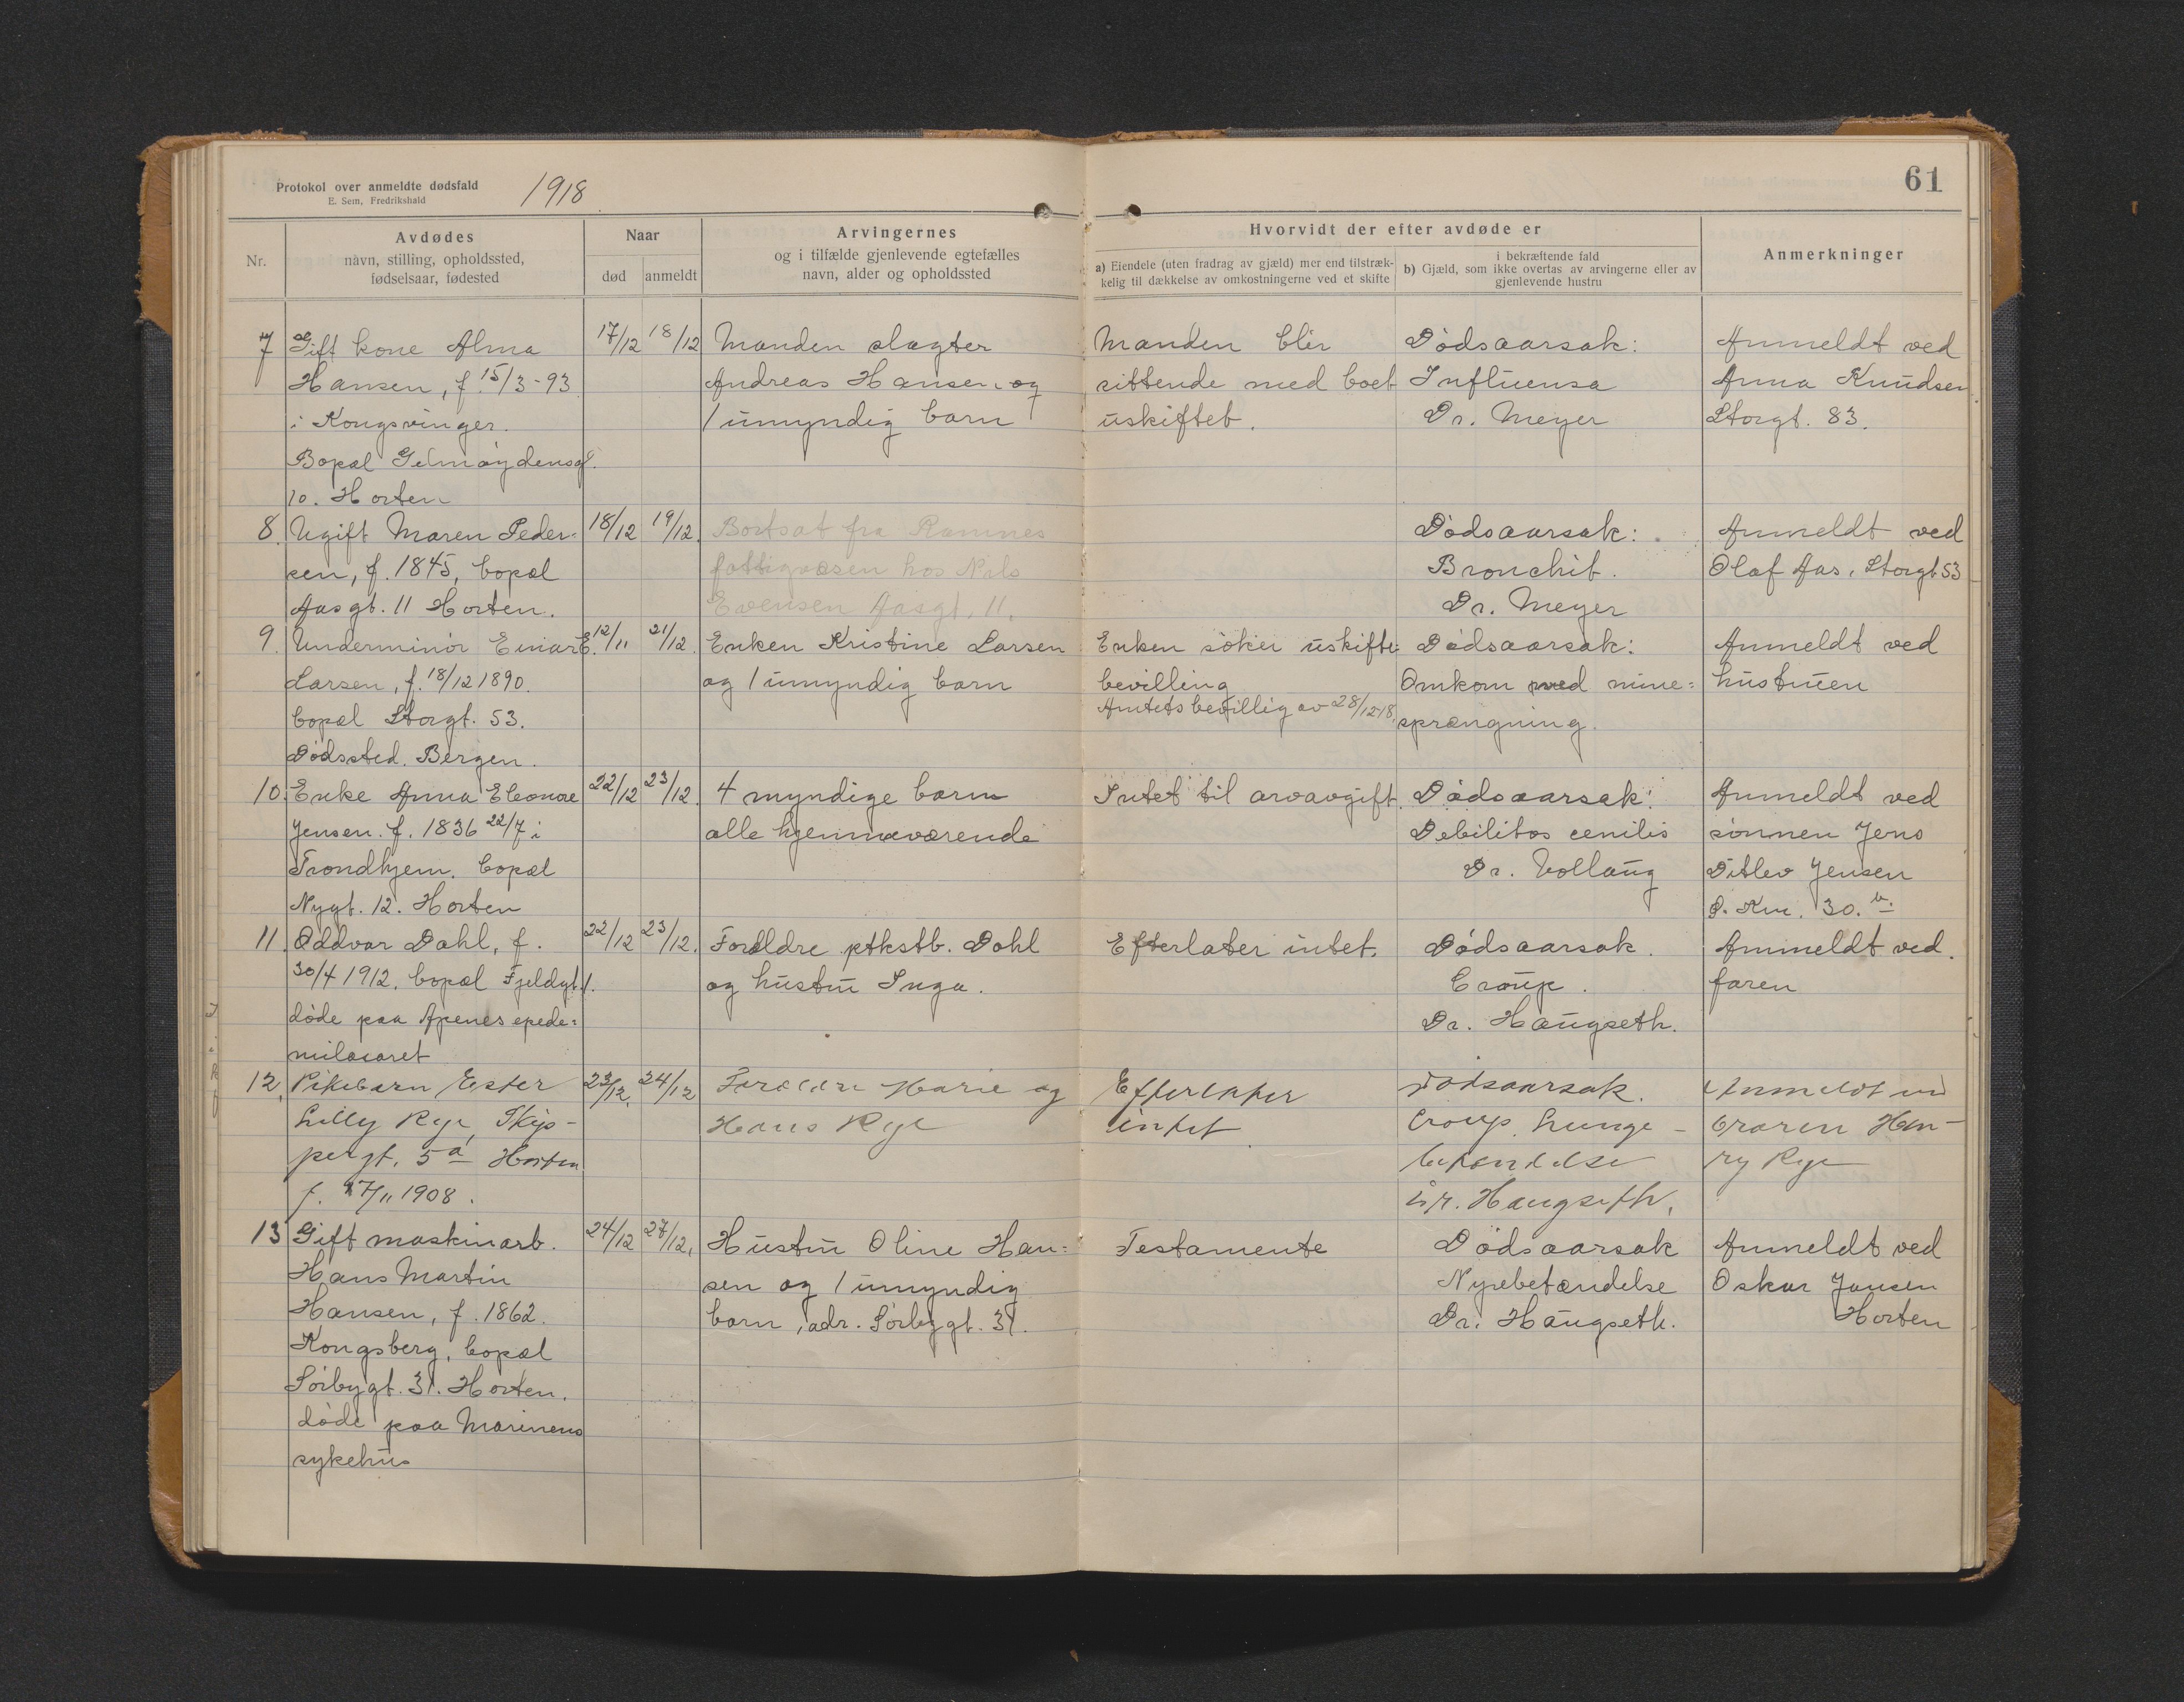 Protokol over anmeldte dødsfald
E. Sem, Fredrikshald
1918
61
Nr.
Avdødes
navn, stilling, opholdssted,
fødselsaar, fødested
Naar
død
anmeldt
Arvingernes
og i tilfælde gjenlevende egtefælles
navn, alder og opholdssted
Hvorvidt der efter avdøde er
a) Eiendele (uten fradrag av gjæld) mer end tilstræk-
kelig til dækkelse av omkostningerne ved et skifte
i bekræftende fald
b) Gjæld, som ikke overtas av arvingerne eller av
gjenlevende hustru
Anmerkninger
7
Gift kone Alma
Hansen, f. 15/3-93
i Kongsvinger.
Bopæl
10. Horten
17/12
18/12
Manden slagter
Andreas Hansen og
1 umyndig barn
Manden blir
sittende med boet
uskiftet.
Dødsaarsak:
Influensa
Dr. Meyer
Anmeldt ved
Anna Knudsen
Storgt. 83.
8.
Ugift Maren Peder-
sen, f. 1845, bopæl
Aasgt. 11 Horten.
18/12
19/12.
Bortsat fra Ramnes
fattigvæsen hos Nils
Evensen Aasgt. 11.
Dødsaarsak:
Bronchit.
Dr. Meyer
Anmeldt ved
Olaf Aas, Storgt 53
9.
Underminør Einar E.
Larsen, f. 18/12 1890.
bopæl Storgt. 53.
Dødssted. Bergen.
12/11
21/12.
Enken Kristine Larsen
og 1 umyndig barn
Enken søker uskifte-
bevilling
Amtets bevillig av 28/12 18.
Dødsaarsak:
Omkom ved mine=
sprængning.
Anmeldt ved
hustruen
10.
Enke Anna Eleonore
Jensen. f. 1836 22/7 i
Trondhjem. bopæl
Nygt. 12. Horten
22/12
23/12.
4 myndige barn
alle hjemmeværende
Intet til arvavgift.
Dødsaarsak:
Debilitas cenilis
Dr. Vollaug
Anmeldt ved
sønnen Jens
Ditlev Jensen
30. b.
11.
Oddvar Dahl, f.
30/4 1912. bopæl Fjeldgt. 1.
døde paa Apenes epede=
milasaret
22/12
23/12.
Foreldre ptkstb. Dahl
og hustru Inga.
Efterlater intet.
Dødsaarsak.
Croup.
Dr. Haugseth.
Anmeldt ved.
faren
12.
Pikebarn Ester
Lilly Rye, Skip-
pergt. 5a Horten
f. 17/11 1908.
23/12.
24/12
Foreldre Marie og
Hans Rye
Efterlater
intet.
Dødsaarsak.
Croup. Lunge-
betendelse
Dr. Haugseth.
Anmeldt ved
broren Hen-
ry Rye
13
Gift maskinarb.
Hans Martin
Hansen, f. 1862.
Kongsberg, bopæl
Sørbygt. 31. Horten.
døde paa Marinens
sykehus
24/12
27/12.
Hustru Oline Han=
sen og 1 umyndig
barn, adr. Sørbygt. 31.
Testamente
Dødsaarsak
Nyrebetændelse
Dr. Haugseth.
Anmeldt ved
Oskar Jansen
Horten